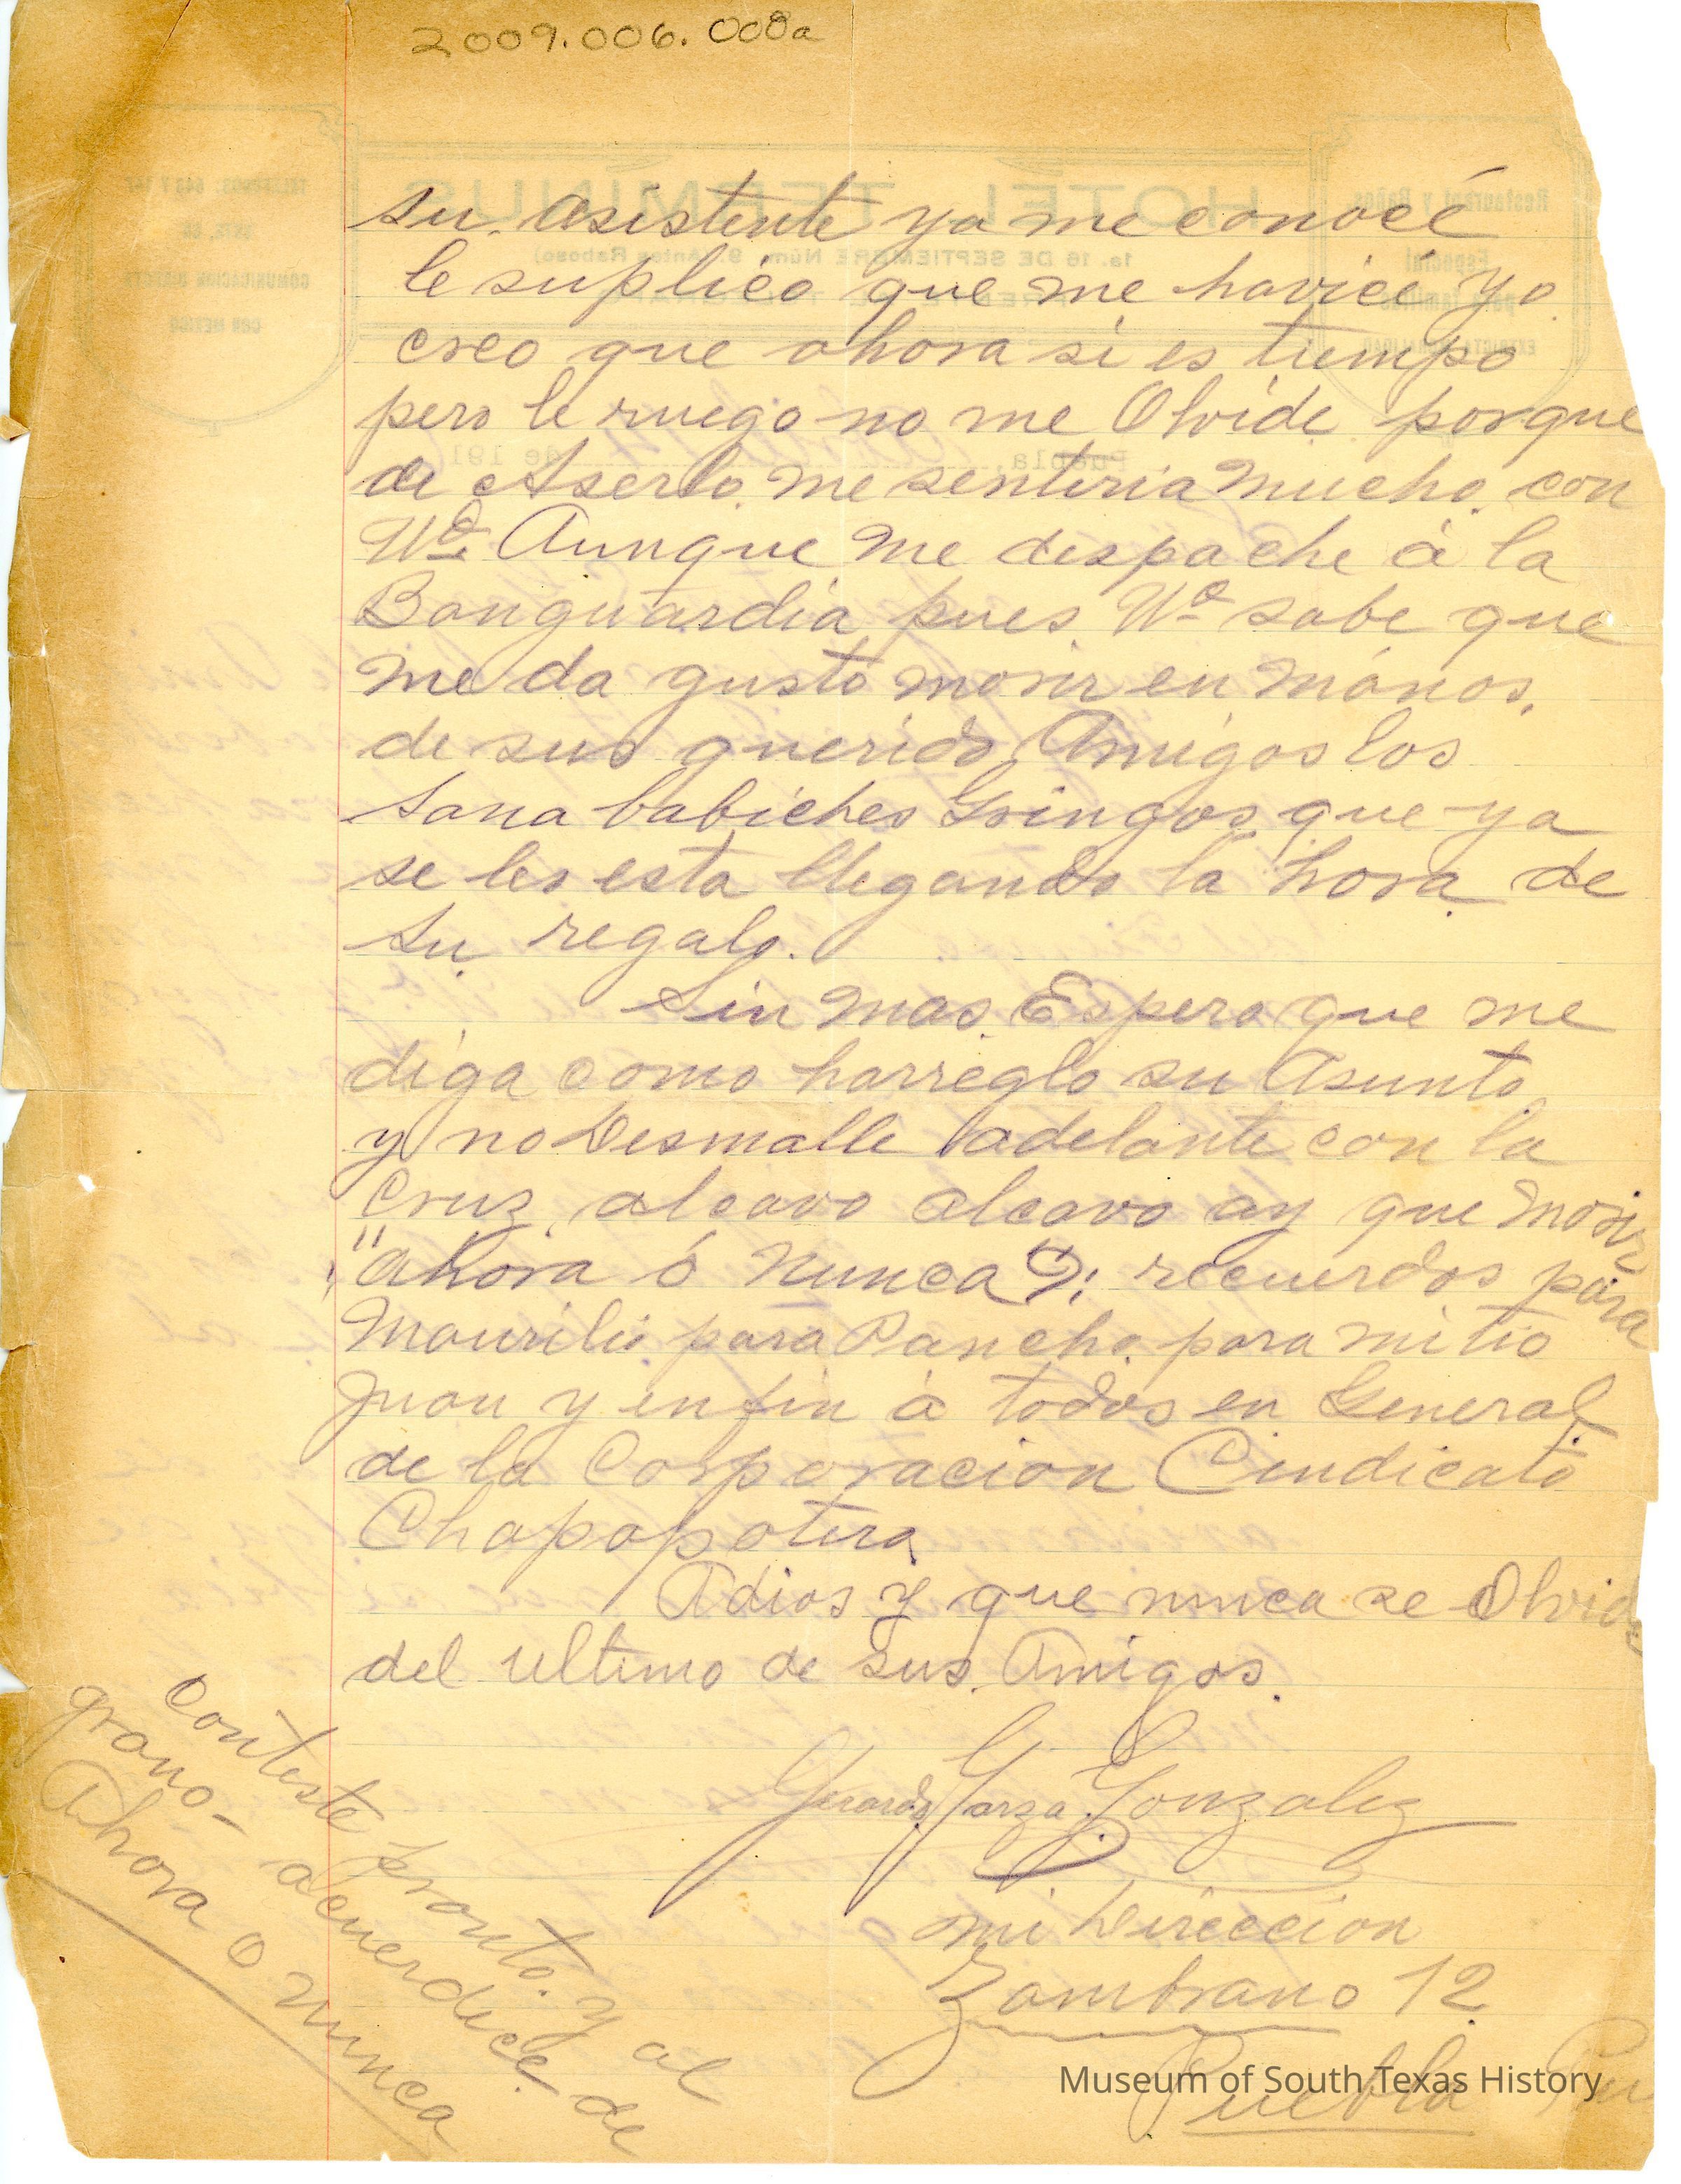 2009.006.008a
su asistente ya me conocé
le suplico que me havicé yo
creo que ahora si es tiempo
pero le ruego no me Olvide porque
de Aserlo me sentiria mucho con
Ud. Aunque me despache á la
Banguardia pues Ud sabe que
me da gusto morir en manos
de sus querido Amigos los
sana babiches Gringos que ya
se les esta llegando la hora de
su regalo.
Sin mas Espero que me
diga como harreglo su Asunto
y no Desmalle adelante con la
Cruz alcavo alcavo ay que morir
"ahora ó Nunca": recuerdos para
Maurilio para Pancho para mi tio
Juan y enfin á todos en General
de la Corporacion Cindicato
Chapopotera
Adios y que nunca se Olvide
del ultimo de sus Amigos.
Gerardo Garza Gonzalez
mi Direccion
Zambrano 12
Puebla Pu
Conteste pronto y al
grano- acuerdece de
Ahora o nunca
HOTEL TERMINUS
1a. 16 DE SEPTIEMBRE Núm. 9. (Antes Raboso)
Restaurant y Baños
Especial
COMUNICACION DIRECTA
CON MEXICO
Puebla, de 191
Museum of South Texas History